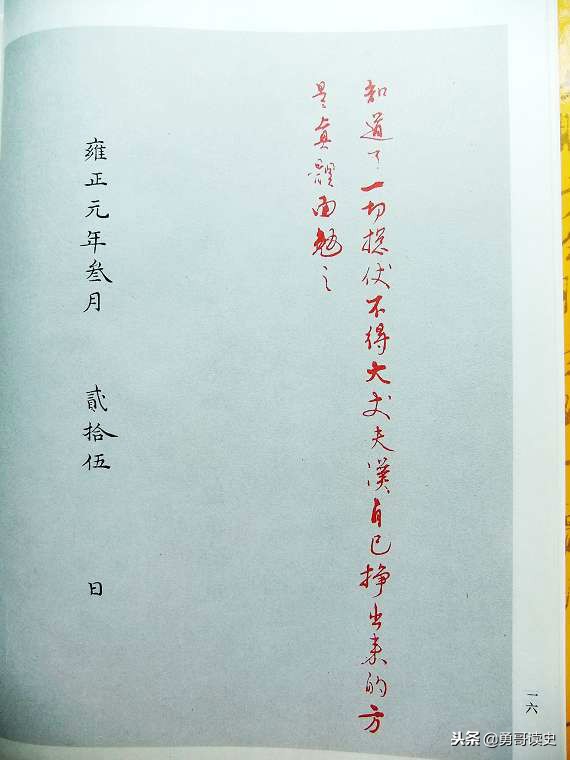 知道了一切揔仗不得大丈夫漢自己挣出来的方
是真體面勉之
雍正元年叁月 貳拾伍 日
一六
头条@勇哥读史